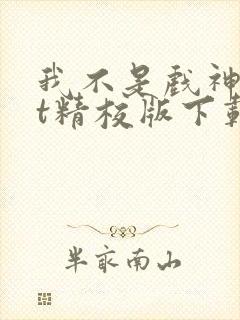 我不是戏神
t精校版下载
半亩南山